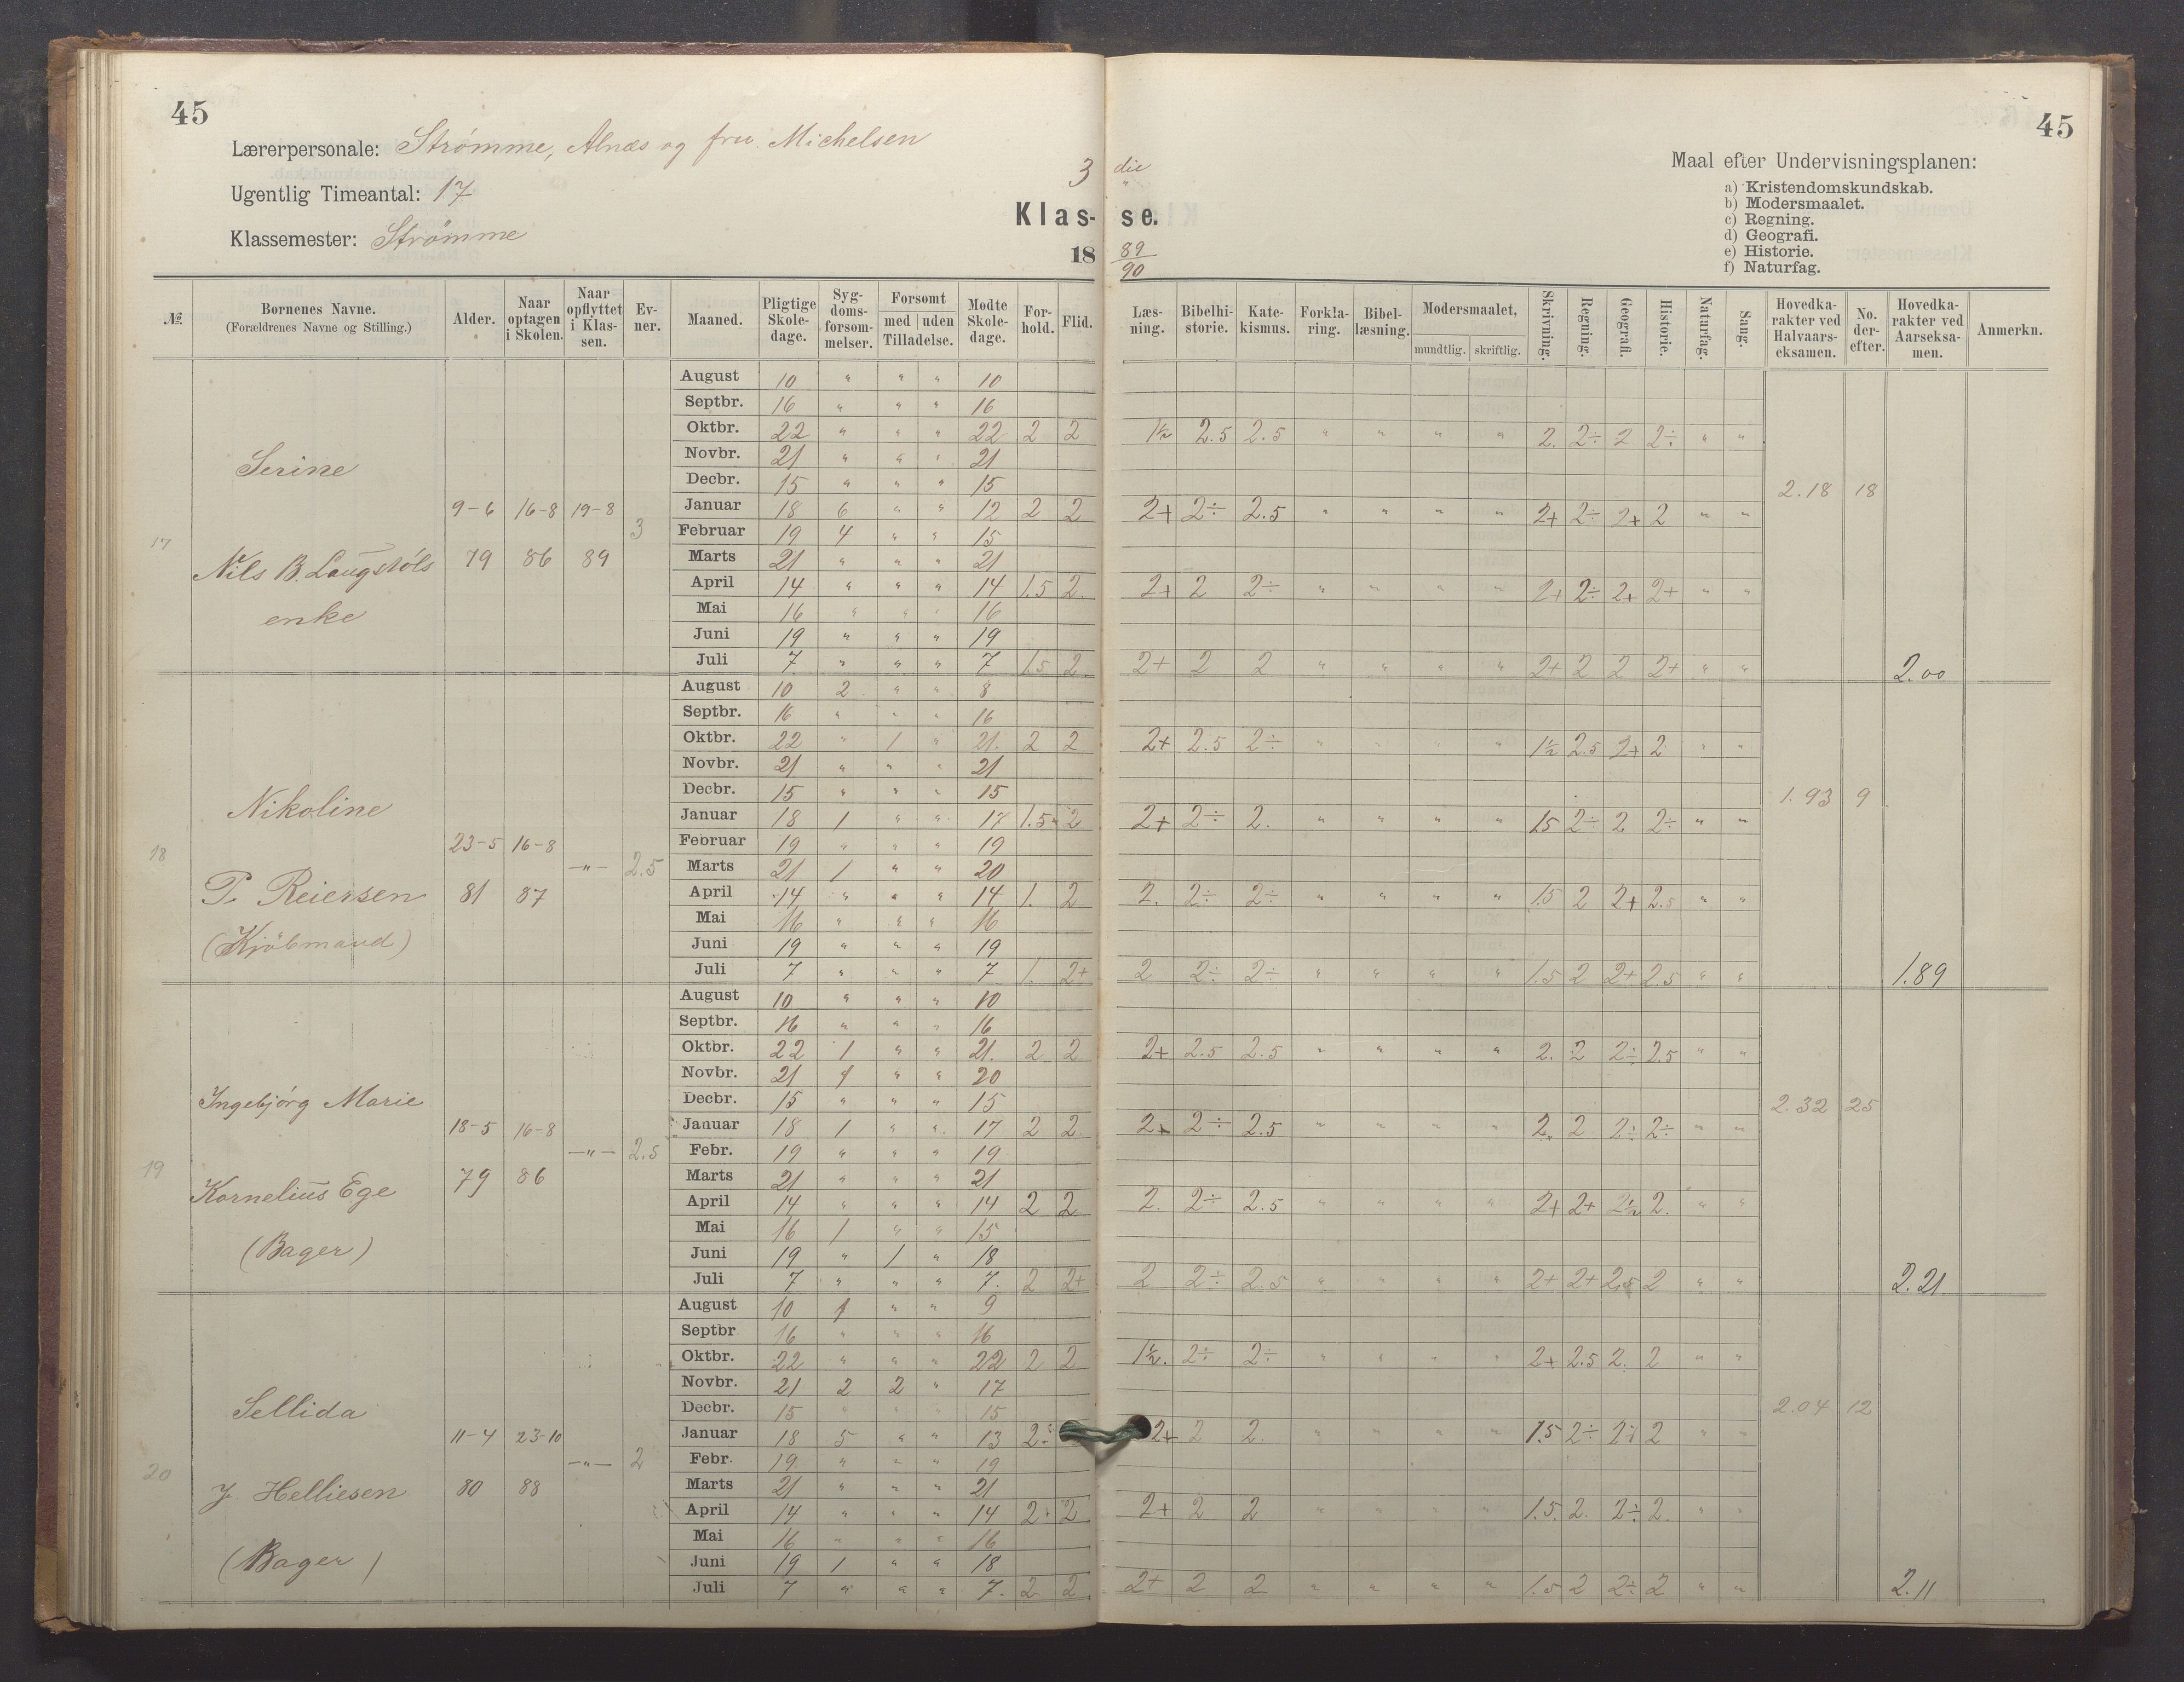 45
45
Lærerpersonale: Strømme, Alnæs og fru Michelsen
Ugentlig Timeantal: 17
Klassemester: Strømme
3 die
Klas- se.
18 89/90
Maal efter Undervisningsplanen:
a) Kristendomskundskab.
b) Modersmaalet.
c) Regning.
d) Geografi.
e) Historie.
f) Naturfag.
№ | Bornenes Navne. (Forældrenes Navne og Stilling.) | Alder. | Naar optagen i Skolen. | Naar opflyttet i Klas-sen. | Ev-ner. | Maaned. | Pligtige Skole-dage. | Syg-doms-forsøm-melser. | Forsømt med uden Tilladelse. | Mødte Skole-dage. | For-hold. | Flid. | Læs-ning. | Bibelhi-storie. | Kate-kismus. | Forkla-ring. | Bibel-læsning. | Modersmaalet, mundtlig. skriftlig. | Skrivning. | Regning. | Geografi. | Historie. | Naturfag. | Sang. | Hovedka-rakter ved Halvaars-eksamen. | No. der-efter. | Hovedka-rakter ved Aarseksa-men. | Anmerkn.
17 Serine Nils B. Laugstöls enke 9-6 79 16-8 86 19-8 89 3
August 10 " " " 10
Septbr. 16 " " " 16
Oktbr. 22 " " " 22 2 2 1½ 2.5 2.5 " " " " 2. 2÷ 2 2÷ " "
Novbr. 21 " " " 21
Decbr. 15 " " " 15 2.18 18
Januar 18 6 " " 12 2 2 2+ 2÷ 2.5 " " " " 2+ 2÷ 2+ 2 " "
Februar 19 4 " " 15
Marts 21 " " " 21
April 14 " " " 14 1.5 2. 2+ 2 2÷ " " " " 2+ 2÷ 2+ 2+ " "
Mai 16 " " " 16
Juni 19 " " " 19
Juli 7 " " " 7 1.5 2 2+ 2 2 " " " " 2+ 2 2 2+ " " 2.00
18 Nikoline P. Reiersen (Kjöbmand) 23-5 81 16-8 87 -"- 2.5
August 10 2 " " 8
Septbr. 16 " " " 16
Oktbr. 22 " 1 " 21. 2 2 2+ 2.5 2÷ " " " " 1½ 2.5 2+ 2 " "
Novbr. 21 " " " 21
Decbr. 15 " " " 15 1.93 9
Januar 18 1 " " 17 1.5 2 2+ 2÷ 2. " " " " 15 2÷ 2 2÷ " "
Februar 19 " " " 19
Marts 21 1 " " 20
April 14 " " " 14 1. 2 2. 2÷ 2÷ " " " " 1.5 2 2+ 2.5 " "
Mai 16 " " " 16
Juni 19 " " " 19
Juli 7 " " " 7 1. 2+ 2 2÷ 2÷ " " " " 1.5 2 2+ 2.5 " " 1.89
19 Ingebjörg Marie Kornelius Ege (Bager) 18-5 79 16-8 86 -"- 2.5
August 10 " " " 10
Septbr. 16 " " " 16
Oktbr. 22 1 " " 21. 2 2 2+ 2.5 2.5 " " " " 2. 2 2÷ 2.5 " "
Novbr. 21 1 " " 20
Decbr. 15 " " " 15 2.32 25
Januar 18 1 " " 17 2 2 2+ 2÷ 2.5 " " " " 2. 2 2÷ 2÷ " "
Febr. 19 " " " 19
Marts 21 " " " 21
April 14 " " " 14 2 2 2. 2÷ 2.5 " " " " 2+ 2+ 2½ 2. " "
Mai 16 1 " " 15
Juni 19 " 1 " 18
Juli 7 " " " 7. 2 2+ 2 2÷ 2.5 " " " " 2+ 2+ 2.5 2 " " 2.21
20 Sellida J. Helliesen (Bager) 11-4 80 23-10 88 -"- 2
August 10 1 " " 9
Septbr 16 " " " 16
Oktbr. 22 " " " 22 2 2 1½. 2÷ 2÷ " " " " 2+ 2.5 2. 2 " "
Novbr. 21 2 2 " 17
Decbr. 15 " " " 15 2.04 12
Januar 18 5 " " 13 2÷ 2+ 2 2. " " " " 1.5 2÷ 2÷ 2 " "
Febr. 19 " " " 19
Marts 21 " " " 21
April 14 " " " 14 2÷ 2 2+ 2 2 " " " " 1.5. 2. 2÷ 2. " "
Mai 16 " " " 16
Juni 19 1 " " 18
Juli 7 " " " 7. 2 2 2+ 2 2 " " " " 1.5 2 2÷ 2 " " 2.11